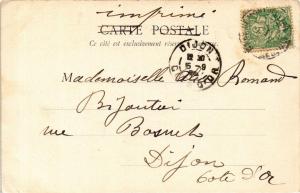 imprimé
CARTE POSTALE
Ce côté est exclusivement réservé
DIJON
Mademoiselle Romand
Bijoutier
rue Bossuet
Dijon
Côte d'Or